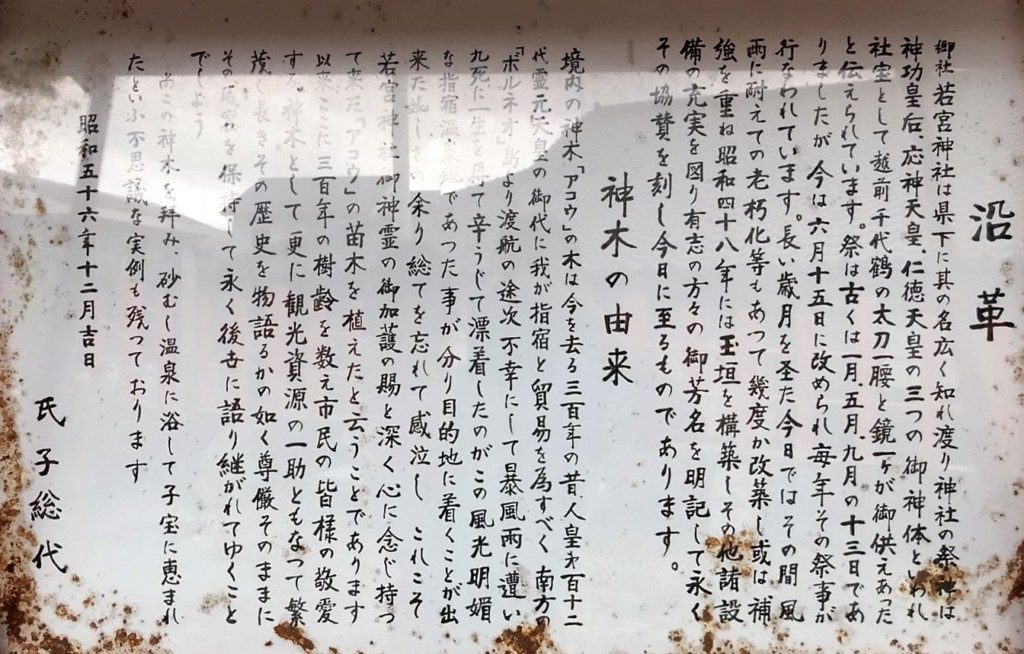 沿革
御社若宮神社は県下に其の名広く知れ渡り神社の祭神は
神功皇后、応神天皇、仁徳天皇の三つの御神体といわれ
社宝として越前千代鶴の太刀一腰と鏡一ケが御供えあった
と伝えられています。祭は古くは一月、五月、九月の十三日であ
りましたが今は六月十五日に改められ毎年その祭事が
行なわれています。長い歳月を圣た今日ではその間風
雨に耐えての老朽化等もあつて幾度か改築し或は補
強を重ね昭和四十八年には玉垣を構築しその他諸設
備の充実を図り有志の方々の御芳名を明記して永く
その協賛を刻し今日に至るものであります。
神木の由来
境内の神木「アコウ」の木は今を去る三百年の昔、人皇才百十二
代霊元天皇の御代に我が指宿と貿易を為すべく南方の
「ボルネオ」島より渡航の途次不幸にして暴風雨に遭い
九死に一生を得て辛うじて漂着したのがこの風光明媚
な指宿温泉地であつた事が分り目的地に着くことが出
来た嬉しさの余り総てを忘れて感泣し これこそ
若宮神社御神霊の御加護の賜と深く心に念じ持つ
て来た「アコウ」の苗木を植えたと云うことであります
以来ここに三百年の樹齢を数え市民の皆様の敬愛
する神木として更に観光資源の一助ともなつて繁
茂し長きその歴史を物語るかの如く尊儼そのままに
その風姿を保持して永く後世に語り継がれてゆくこと
でしよう
尚この神木を拝み、砂むし温泉に浴して子宝に恵まれ
たといふ不思議な実例も残つております
昭和五十六年十二月吉日
氏子総代